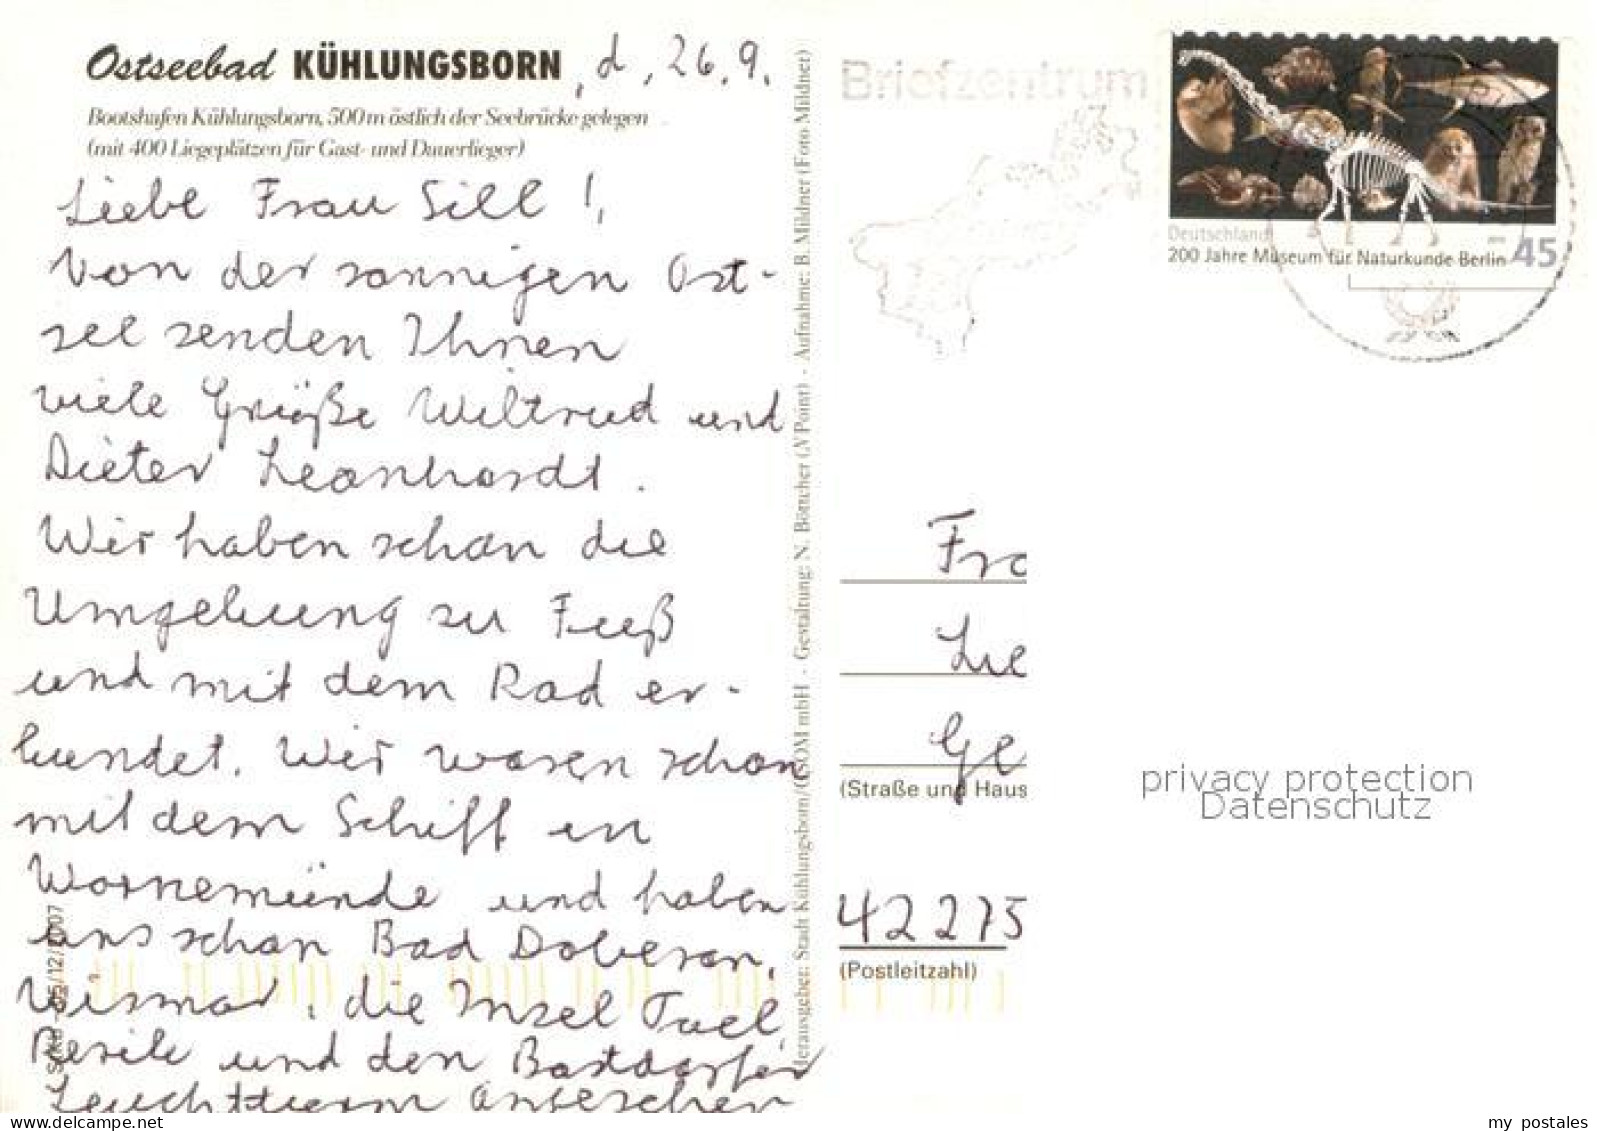 Ostseebad KÜHLUNGSBORN, d. 26.9.
Bootshafen Kühlungsborn, 500 m östlich der Seebrücke gelegen
(mit 400 Liegeplätzen für Gast- und Dauerlieger)
Liebe Frau Sill!,
Von der sonnigen Ost-
see senden Ihnen
viele Grüße Wiltrud und
Dieter Leonhardt.
Wir haben schon die
Umgebung zu Fuß
und mit dem Rad er-
kundet. Wir waren schon
mit dem Schiff in
Warnemünde und haben
uns schon Bad Doberan,
Wismar, die Insel Poel,
Rerik und den Bastdorfer
Leuchtturm angesehen
Herausgeber: Stadt Kühlungsborn/ - Gestaltung: N. Böttcher (NPoint) - Aufnahme: B. Mildner (Foto Mildner)
Briefzentrum
Deutschland
45
200 Jahre Museum für Naturkunde Berlin
Fra
Lie
Ge
(Straße und Haus
42275
(Postleitzahl)
privacy protection
Datenschutz
www.delcampe.net
my_postales